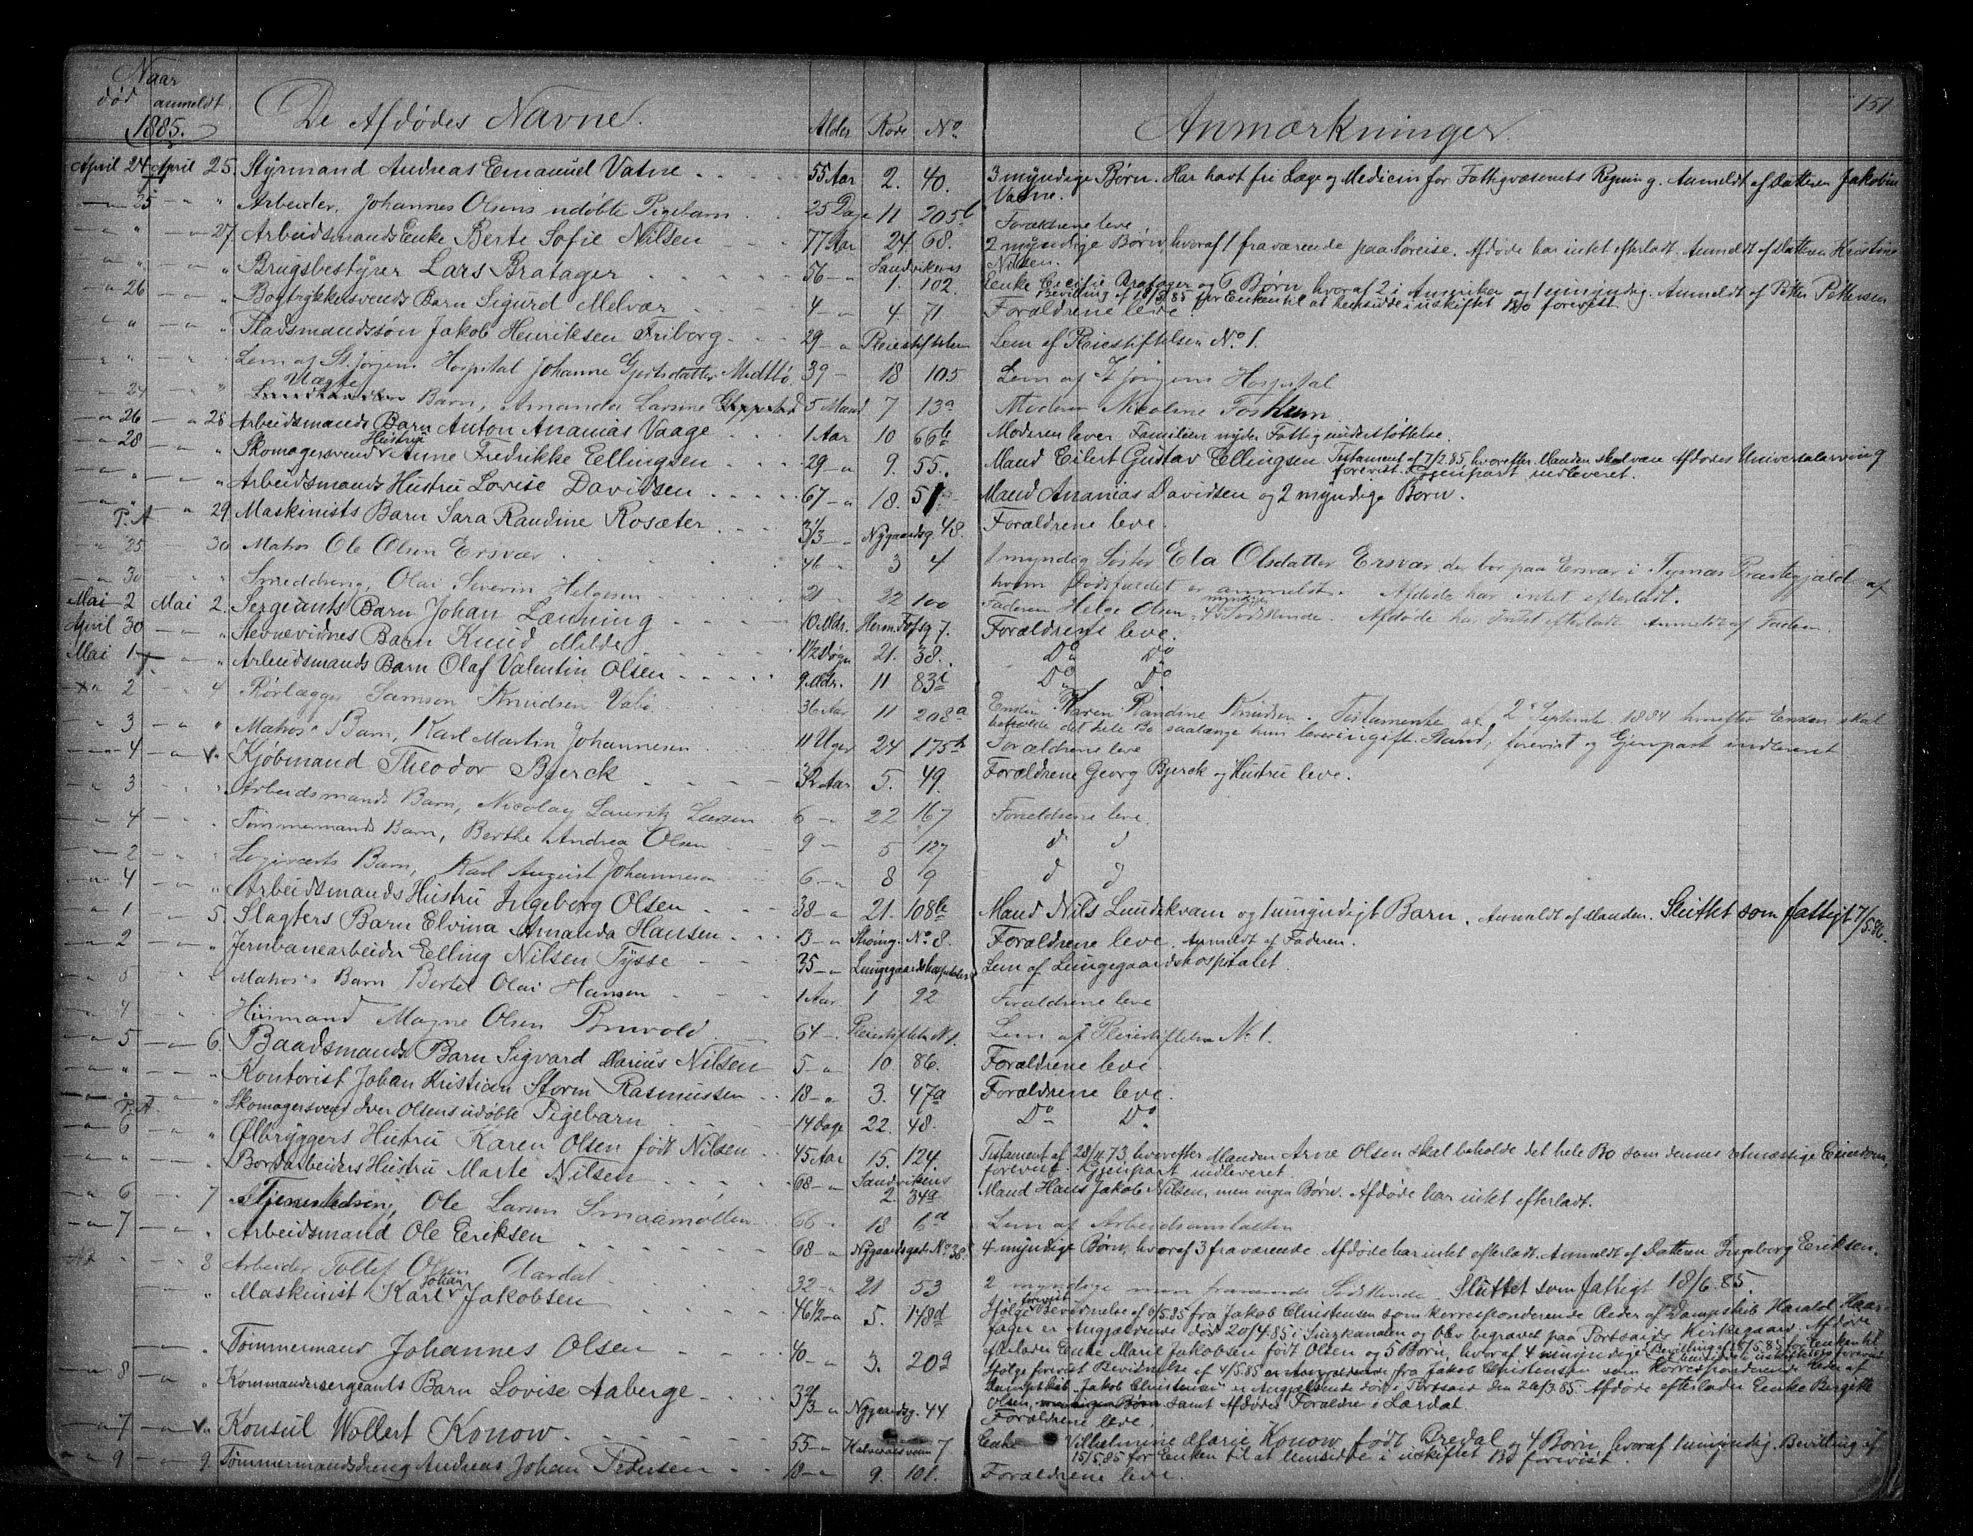 151
Naar
død anmeldt
1885.
De Afdødes Navne. Alder Rode No Anmærkninger.
April 24 April 25. Styrmand Andreas Emanuel Vatne 55 Aar 2. 40. 3 myndige Børn. Har havt fri Læge og Medicin for Fattigvæsenets Regning. Anmeldt af Datteren Jakobine
Vatne.
25 " Arbeider, Johannes Olsens udøbte Pigebarn 25 Dage 11 205b Forældrene leve
" 27 Arbeidsmands Enke Berte Sofie Nilsen 77 Aar 24. 68. 2 myndige Børn, hvoraf 1 fraværende paa Søreise. Afdøde har intet efterladt. Anmeldt af Datteren Kristine
Nilsen.
" " Brugsbestyrer Lars Bratager 56 Sandvikens 1. 102. Enke Bratager og 6 Børn, hvoraf 2 i Amerika og 1 umyndig. Anmeldt af Petter Pettersen
Bevilling af for Enken til at hensidde i uskiftet Bo forevist.
26 " Bogtrykkersvends Barn Sigurd Melvær 4 4 71 Forældrene leve
" " Stadsmandssøn Jakob Henriksen Friborg 29 Pleiestiftelsen Lem af Pleiestiftelsen No 1.
" " Lem af St. Jørgens Hospital Johanne Gjertsdatter Midttø. 39 18 105 Lem af St Jørgens Hospital
24 " Uægte Barn, Amanda Larsine 5 Maand 7 13a Moderen Nicoline
26 28 Arbeidsmands Barn Anton Ananias Vaage 1 Aar 10 66b Moderen lever Familien nyder Fattigunderstøttelse.
28 " Skomagersvends Hustru Anne Fredrikke Ellingsen 29 9. 55. Mand Eilert Gustav Ellingsen. Testament af 7/2.85, hvorefter Manden skal være Afdødes Universalarving
forevist. Gjenpart indleveret.
" " Arbeidsmands Hustru Lovise Davidsen 67 18. 51. Mand Ananias Davidsen og 2 myndige Børn.
P. A 29 Maskinists Barn Sara Randine Rosæter 3 1/3 Nygaardsg. 48. Forældrene leve.
25 30 Matros Ole Olsen Ersvær 46 3 4 1 myndig Søster Ela Olsdatter Ersvær der bor paa Ersvær i Tysnæs Præstegjæld af
hvem Dødsfaldet er anmeldt. Afdøde har intet efterladt.
30 " Smeddreng, Olai Severin Helgesen 21 22 100 Faderen Helge Olsen, 4 myndige Sødskende. Afdøde har intet efterladt Anmeldt af Faderen.
Mai 2 Mai 2. Sergeants Barn Johan Lænning 10 Mdr. Herm. Fossg 7. Forældrene leve.
April 30 " Stevnevidnes Barn Knud Milde 1 1/2 Døgn 21. 38. Do Do
Mai 1 " Arbeidsmands Barn Olaf Valentin Olsen 9 Mdr. 11 83 Do Do
2 4 Rørlægger Samson Knudsen 36 Aar 11 208a Enken Karen Randine Knudsen. Testamente af 2 September 1884 hvorefter Enken skal
beholde det hele Bo saalænge hun lever i ugift Stand, forevist og Gjenpart indleveret
3 " Matros' Barn, Karl Martin Johannesen 11 Uger 24 175b Forældrene leve
4 " Kjøbmand Theodor Bjerck 32 Aar 5. 49. Forældrene Georg Bjerck og Hustru leve.
3 " Arbeidsmands Barn, Nicolay Lauritz Larsen 6 22 167 Forældrene leve.
4 " Tømmermands Barn, Berthe Andrea Olsen 9 5 127 d d
2 " Logiværts Barn, Karl August Johannesen 6 8 9 d d
4 " Arbeidsmands Hustru Ingeborg Olsen 38 21. 108b Mand Nils Lundekvam og 1 umyndigt Barn. Anmeldt af Manden. Sluttet som fattigt 7/5.86.
1 5. Slagters Barn Elvina Amanda Hansen 13 Strømg. No 8. Forældrene leve. Anmeldt af Faderen.
2 " Jernbanearbeider Elling Nilsen Tysse 35 Lungegaardshospitalet Lem af Lungegaardshospitalet.
5 " Matros's Barn Bertel Olai Hansen 1 Aar 1 22 Forældrene leve
4 " Huusmand Magne Olsen Bruvold 64 Pleiestiftelsen No 1. Lem af Pleiestiftelsen No 1.
5 6. Baadsmands Barn Sigvard Marius Nilsen 5 10 86. Forældrene leve
" " Kontorist Johan Kristian Storm Rasmussen 18 3. 47a Forældrene leve.
P. A. " Skomagersvend Iver Olsens udøbte Pigebarn 14 Dage 22. 48. Do Do
6 " Ølbryggers Hustru Karen Olsen født Nilsen 45 Aar 15. 124. Testament af 28/11.73, hvorefter Manden Arne Olsen skal beholde det hele Bo som dennes retmæssige Eiendom,
forevist. Gjenpart indleveret.
" " Bordarbeiders Hustru Marte Nilsen 68 Sandvikens 2. 34a Mand Hans Jakob Nilsen, men ingen Børn. Afdøde har intet efterladt.
6 7 Ole Larsen Smaamøllen 66 18 6d Lem af Arbeidsanstalten
7 " Arbeidsmand Ole Eriksen 68 Nygaardsgade No 38. 4 myndige Børn, hvoraf 3 fraværende. Afdøde har intet efterladt. Anmeldt af Datteren Ingeborg Eriksen.
8 Arbeider Tollef Olsen Aardal 32 21 53 2 myndige men fraværende Sødskende. Sluttet som fattigt 18/6.85.
" Maskinist Karl Johan Jakobsen 46 1/2 5. 148d Ifølge forevist Bevidnelse af 6/5.85 fra Jakob Christensen som korresponderende Reder af Dampskib Harald Haar-
fager er Angjældende død 20/4.85 i Suezkanalen og blev begravet paa Portsaids Kirkegaard. Afdøde
efterlader Enke Marie Jakobsen født Olsen og 5 Børn, hvoraf 4 umyndige. Bevilling af for Enken til
" Tømmermand Johannes Olsen 40 3. 20a Ifølge forevist Bevidnelse af 4/5.85 fra Jakob Christensen som korresponderende Reder af
Dampskib "Jakob Christensen" er Angjældende død i Portsaid den 26/3.85. Afdøde efterlader Enke Birgitte
Olsen, samt Afdødes Forældre i Lærdal.
8 " Kommandersergeants Barn Lovise Aaberge 3 2/3 Nygaardsg. 44 Forældrene leve.
7 " Konsul Wollert Konow 55 Kalvedalsveien 7 Enke Vilhelmine Marie Konow født Bredal og 4 Børn, hvoraf 1 umyndig. Bevilling af
15/5.85 for Enken til at hensidde i uskiftet Bo forevist.
9 9 Tømmermandsdreng Andreas Johan Pedersen 10 9. 101. Forældrene leve.